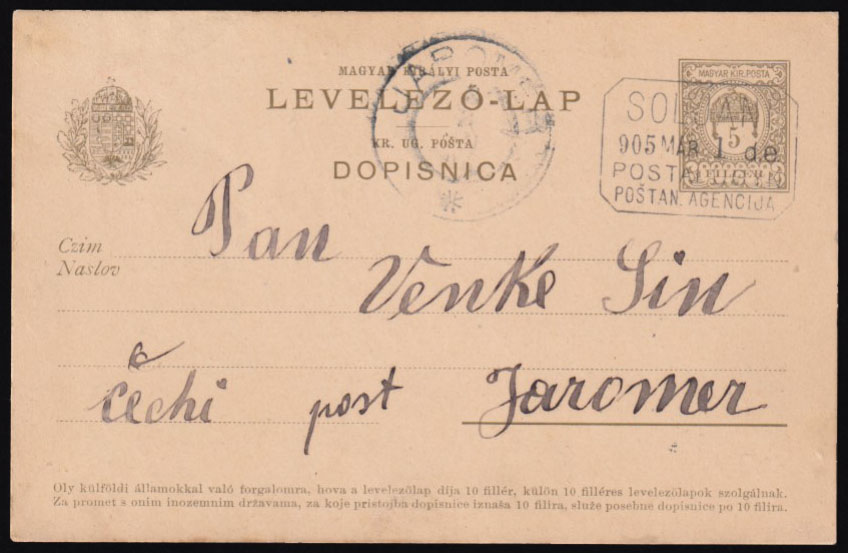 MAGYAR KIRÁLYI POSTA
LEVELEZŐ-LAP
KR. UG. POŠTA
DOPISNICA
MAGYAR KIR. POSTA
5
FILLÉR
905 MÁR. 1 d.e.
POSTAI
POŠTAN. AGENCIJA
Czim
Naslov
Pan
Venke Sin
Čechi post Jaromer
Oly külföldi államokkal való forgalomra, hova a levelezőlap díja 10 fillér, külön 10 filléres levelezőlapok szolgálnak.
Za promet s onim inozemnim državama, za koje pristojba dopisnice iznaša 10 filira, služe posebne dopisnice po 10 filira.